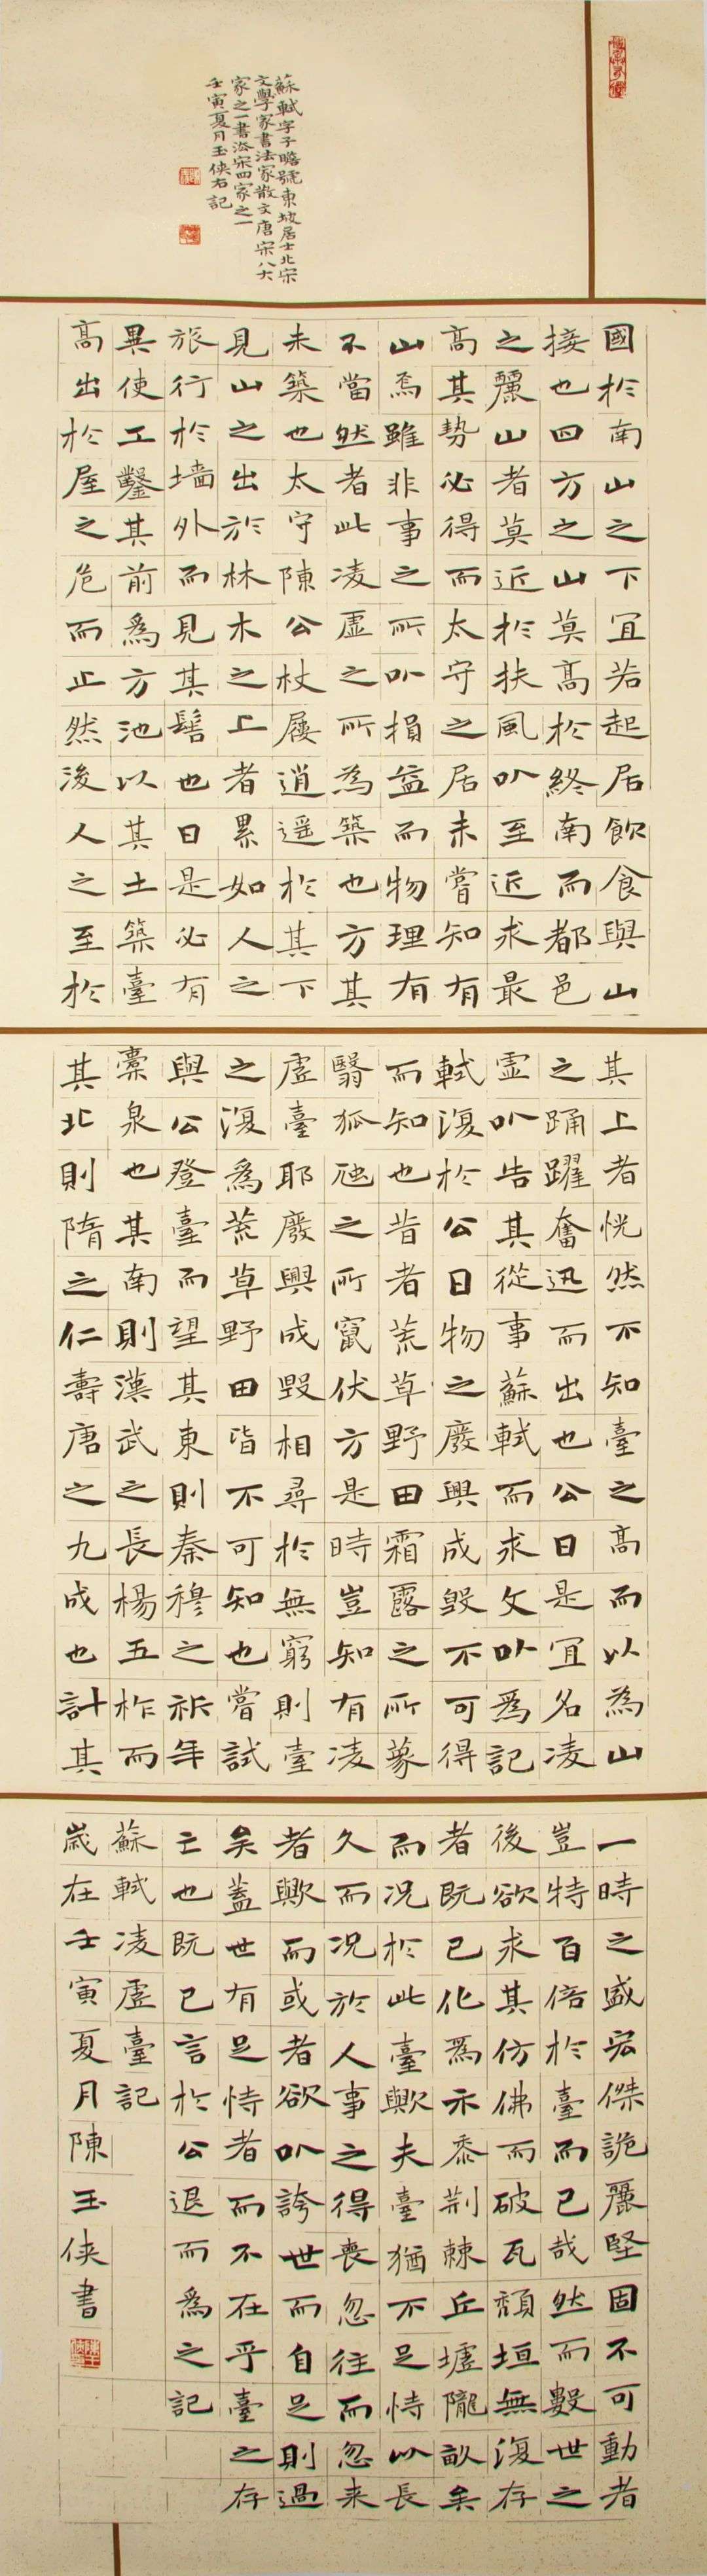 蘇軾字子瞻號東坡居士北宋
文學家書法家散文唐宋八大
家之一書法宋四家之一
壬寅夏月玉俠右記
國於南山之下宜若起居飲食與山
接也四方之山莫高於終南而都邑
之麗山者莫近於扶風以至近求最
高其勢必得而太守之居未嘗知有
山焉雖非事之所以損益而物理有
不當然者此凌虛之所為築也方其
未築也太守陳公杖屨逍遥於其下
見山之出於林木之上者累如人之
旅行於墻外而見其髻也曰是必有
異使工鑿其前爲方池以其土築臺
高出於屋之危而止然後人之至於
其上者恍然不知臺之高而以為山
之踊躍奮迅而出也公曰是宜名凌
虛以告其從事蘇軾而求文以爲記
軾復於公曰物之廢興成毀不可得
而知也昔者荒草野田霜露之所蒙
翳狐虺之所竄伏方是時豈知有凌
虛臺耶廢興成毀相尋於無窮則臺
之復爲荒草野田皆不可知也嘗試
與公登臺而望其東則秦穆之祈年
橐泉也其南則漢武之長楊五柞而
其北則隋之仁壽唐之九成也計其
一時之盛宏傑詭麗堅固不可動者
豈特百倍於臺而已哉然而數世之
後欲求其仿佛而破瓦頹垣無復存
者既已化爲禾黍荆棘丘墟隴畝矣
而况於此臺歟夫臺猶不足恃以長
久而况於人事之得喪忽往而忽来
者歟而或者欲以誇世而自足則過
矣蓋世有足恃者而不在乎臺之存
亡也既已言於公退而爲之記
蘇軾凌虛臺記
歲在壬寅夏月陳玉俠書